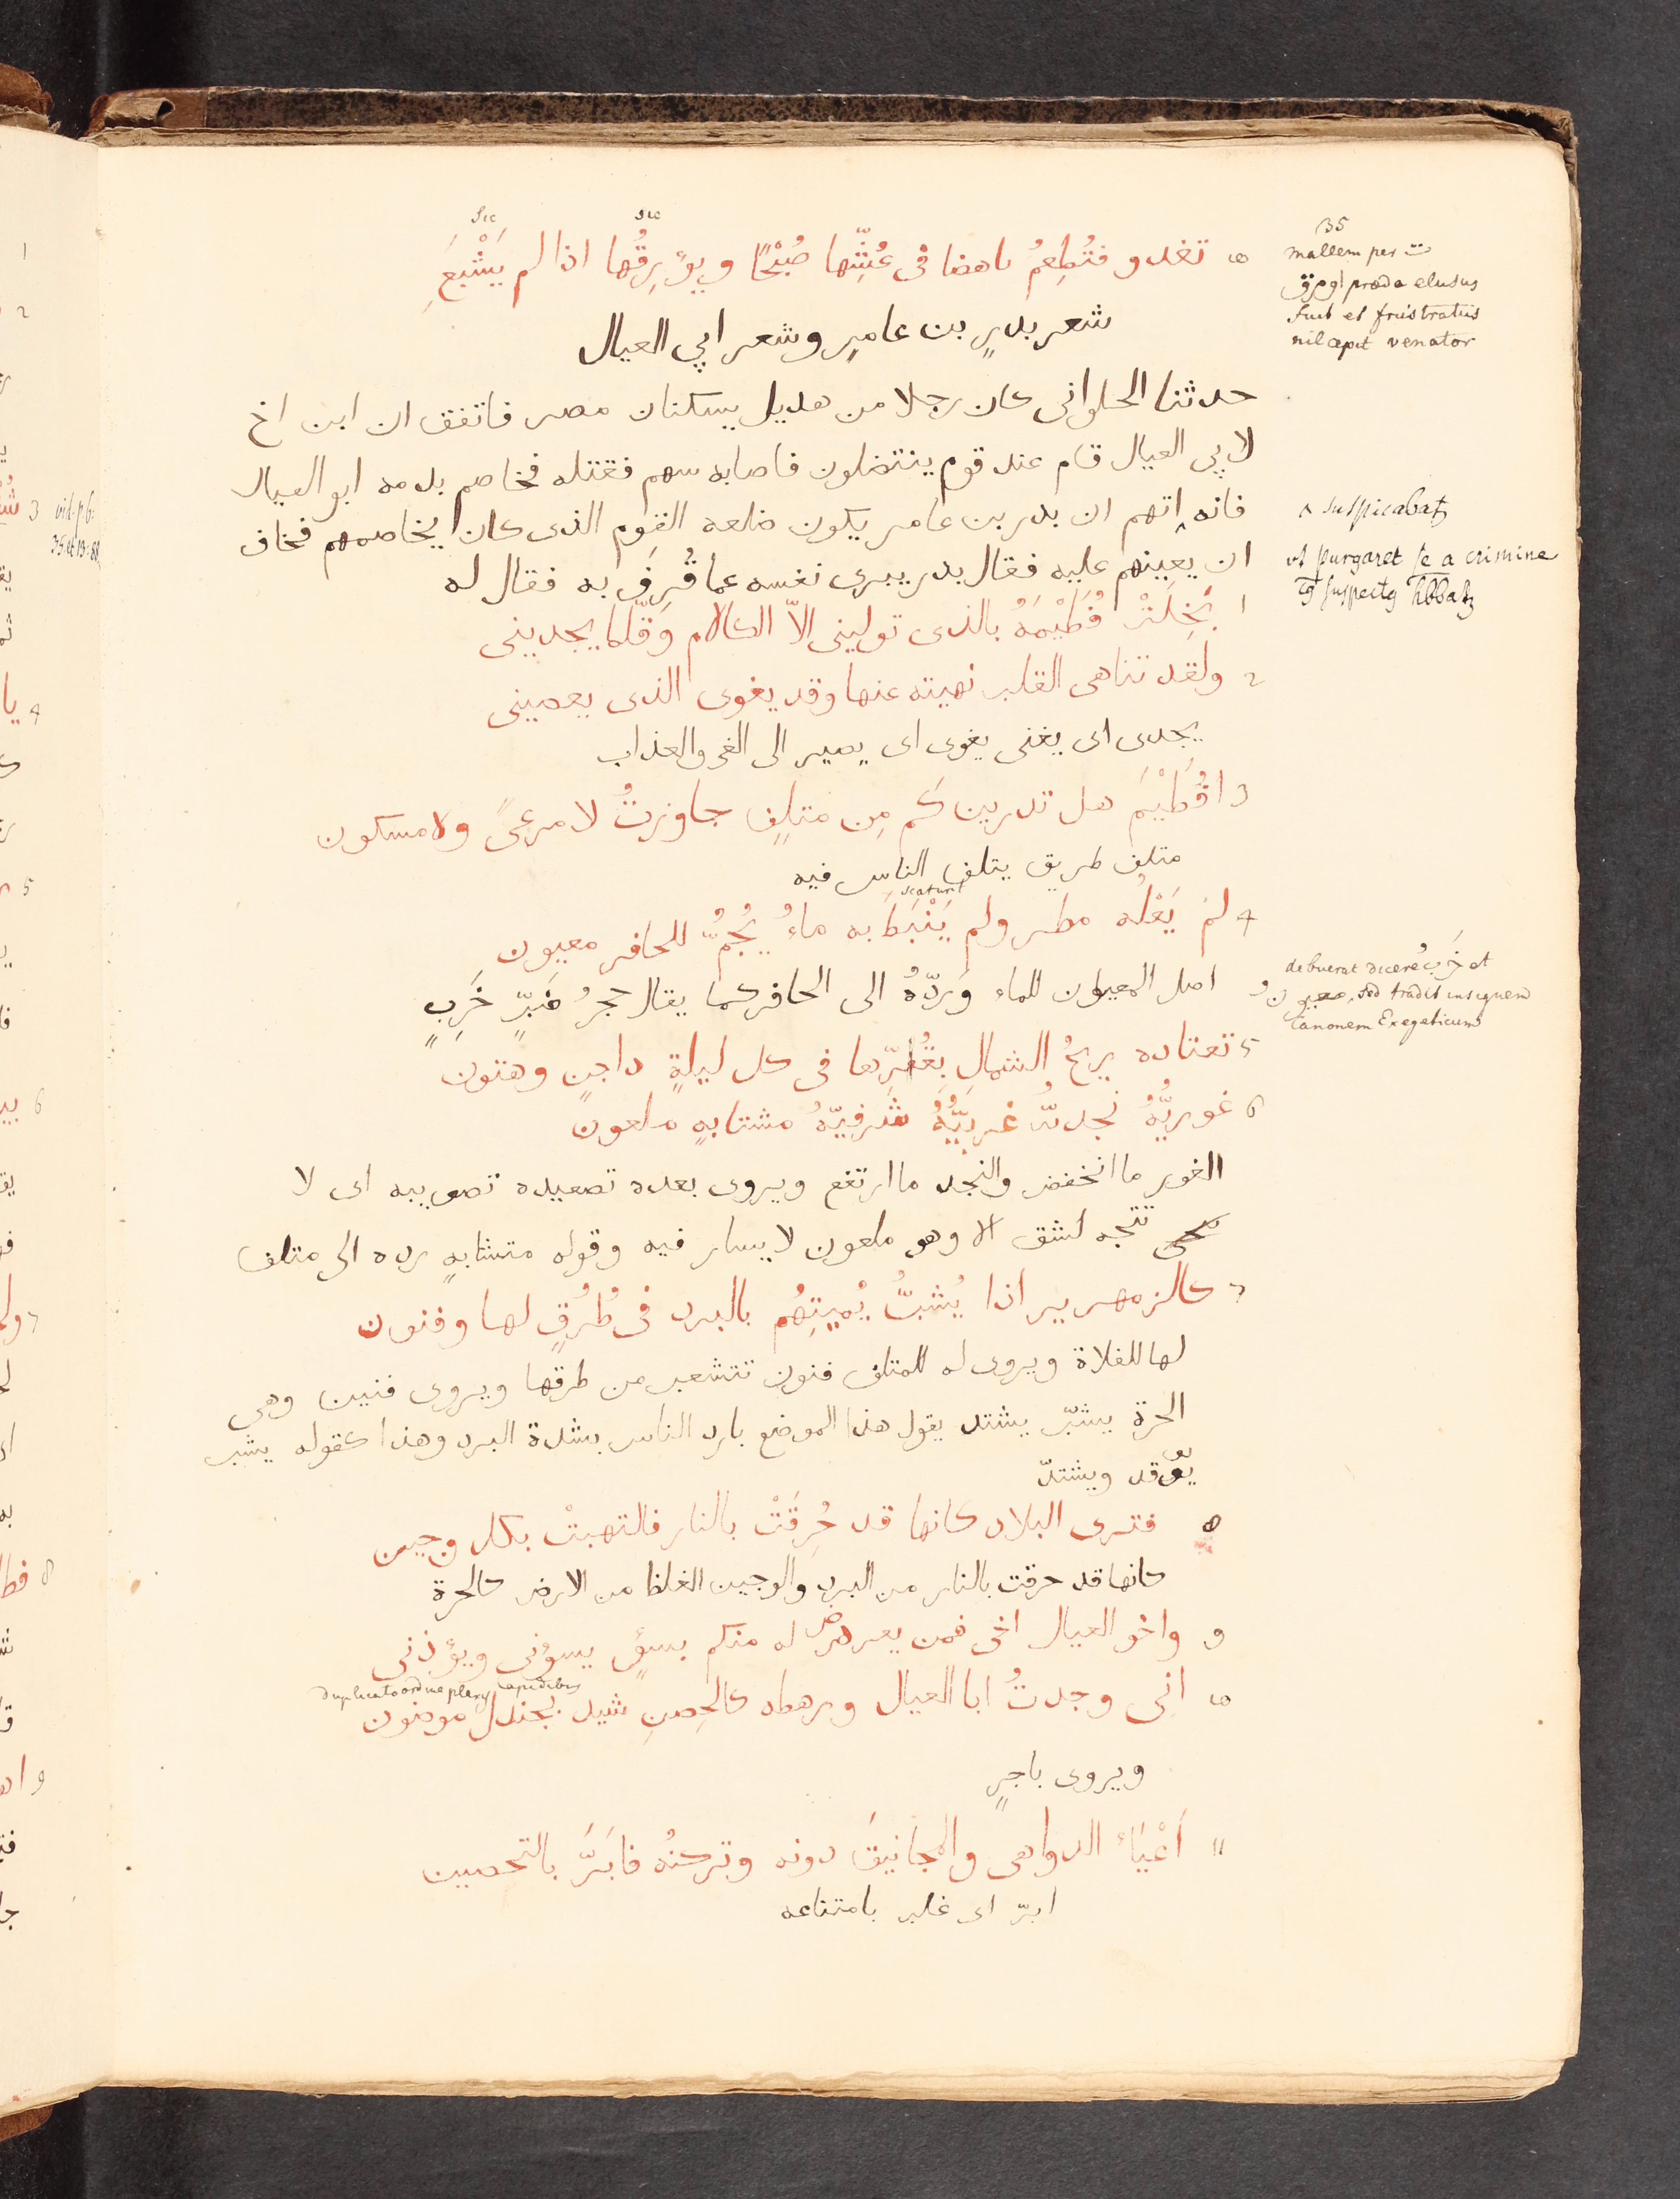 10 تغدو فتُطعِمُ ناهضا فى عُشِّها صُبْحًا ويؤرِقُها اذا لم يَشْبَعَِ
sic
sic
شعر بدرٍ بن عامرٍ وشعر ابى العيال
حدثنا الحلوانى كان رجلا من هديل يسكنان مصر فاتفق ان ابن اخ
لابى العيال قام عند قوم ينتضلون فاصابه سهم فقتله فخاصم بدمه ابو العيال
فانه اتهم ان بدر بن عامر يكون ضلعه القوم الذى كان يخاصمهم فخاف
ان يعينهم عليه فقال بدر يبرى نفسه عما قُرِفَ به فقال له
1 بَخِلَتْ فُطَيْمَهُ بالذى تولينى الّا الكلام وقّلما يجدينى
2 ولقد تناهى القلب نهيته عنها وقد يغوى الذى يعصينى
يجدى اى يغنى يغوى اى يصير الى الغى والعذاب
3 افُطَيْمَ هل تدرين كَم مِن متلفٍ جاوزتُ لا مرعىً ولا مسكون
متلف طريق يتلف الناس فيه
scaturit
4 لم يَعْلُه مطر ولم يَنْبَطَ به ماءُ يُجُمُّ للحافر معيون
اصل المعيون للماء وَردّهُ الى الحافر كما يقال حجرُ ضَبٍّ خَرِبٍ
5 تعتاده ريحُ الشمالِ بِقُرِّها فى كل ليلةٍ داجنٍ وهتون
6 غوريُّهُ نجديُّه غربيُّهُ شرفيّهُ مشتابهٍ ملعون
الغور ما انخفض والنجد ما ارتفع ويروى بعده تصعيده تصويبه اى لا
تتجه لشق الا وهو ملعون لا يسار فيه وقوله متشابهٍ رده الى متلف
7 كالزمهرير اذا يُشبُّ يُميتِهُم بالبرد فى طُرُقٍ لها وفنون
لها للفلاة ويروى له للمتلف فنون تتشعب من طرقها ويروى فنين وهى
الحرة يشبّ يشتد يقول هذا الموضع بارد الناس بشدة البرد وهذا كقوله يشب
يوّقد ويشتدّ
8 فترى البلاد كانها قد حُرِقَتْ بالنار فالتهبتْ بكل وجين
كانها قد حرقت بالنار من البرد والوجين الغلظ من الارض كالحرة
9 واخو العيال اخى فمن يعرض له منكم بسؤٍ يسؤنى ويؤذنى
duplicato ordine plenus lapidibus
10 انى وجدتُ ابا العيال ورهطه كالحِصنِ شيد بجندل موضون
ويروى باجرٍ
11 اَعْيَاءُ الدواهى والمجانيقَ دونه وتركنُه فابَرَّ بالتحصين
ابرّ اى غلب بامتناعه
135
mallem per
اورق præda elusus
fuit et frustratus
nil cepit venator
^ suspicabatur
ut purgaret se a crimine
debuerat dicere خَرِبُ et
معيونُ, sed tradit insignem
Canonem Exegeticum
vid. p 6: